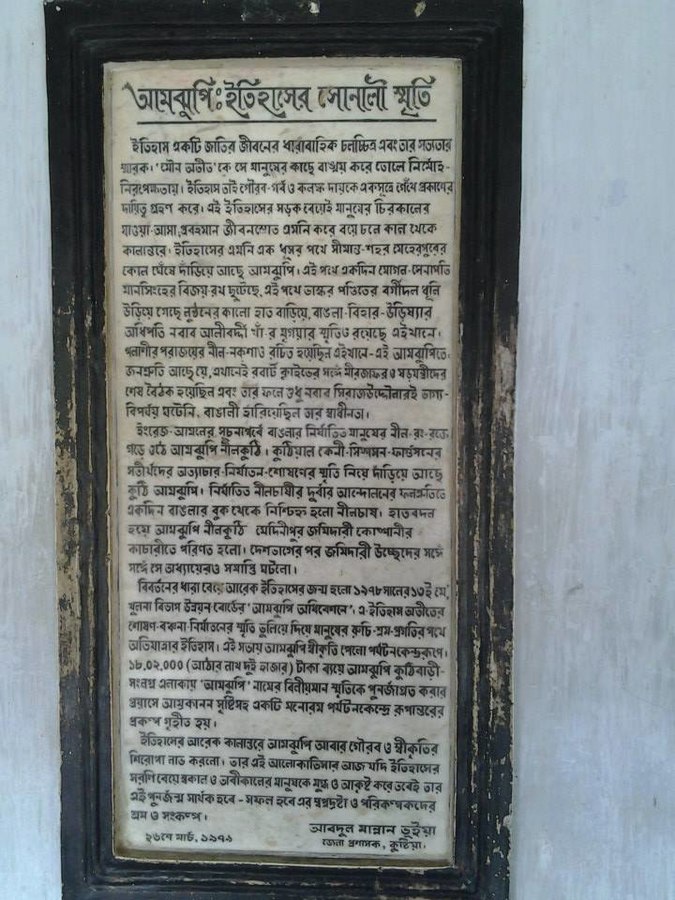 আমঝুপিঃ ইতিহাসের সোনালী স্মৃতি
ইতিহাস একটি জাতির জীবনের ধারাবাহিক চলচ্চিত্র এবং তার সভ্যতার
স্মারক। 'মৌন অতীত'কে সে মানুষের কাছে বাঙ্ময় করে তোলে নির্মোহ-
নিরপেক্ষতায়। ইতিহাস তাই গৌরব-গর্ব ও কলঙ্ক দায়কে একসূত্রে গেঁথে প্রকাশের
দায়িত্ব গ্রহণ করে। এই ইতিহাসের সড়ক বেয়েই মানুষের চিরকালের
যাওয়া-আসা, প্রবহমান জীবনস্রোত এমনি করে বয়ে চলে কাল থেকে
কালান্তরে। ইতিহাসের এমনি এক ধূসর পথে সীমান্ত-শহর মেহেরপুরের
কোল ঘেঁষে দাঁড়িয়ে আছে আমঝুপি। এই পথে একদিন মোগল-সেনাপতি
মানসিংহের বিজয়-রথ ছুটেছে, এই পথে ভাস্কর পণ্ডিতের বর্গীদল ধূলি
উড়িয়ে গেছে লুণ্ঠনের কালো হাত বাড়িয়ে, বাঙলা-বিহার-উড়িষ্যার
অধিপতি নবাব আলীবর্দ্দী খাঁ-র মৃগয়ার স্মৃতিও রয়েছে এইখানে।
পলাশীর পরাজয়ের নীল-নকশাও রচিত হয়েছিল এইখানে-এই আমঝুপিতে।
জনশ্রুতি আছে যে, এখানেই রবার্ট ক্লাইভের সঙ্গে মীরজাফর ও ষড়যন্ত্রীদের
শেষ বৈঠক হয়েছিল এবং তার ফলে শুধু নবাব সিরাজউদ্দৌলারই ভাগ্য-
বিপর্যয় ঘটেনি, বাঙালী হারিয়েছিল তার স্বাধীনতা।
ইংরেজ-আমলের সূচনাপর্বে বাঙলার নির্যাতিত মানুষের নীল-রং-রক্তে
গড়ে ওঠে আমঝুপি নীলকুঠি। কুঠিয়াল কেনী-সিম্পসন-ফার্গুসনের
সতীর্থদের অত্যাচার-নির্যাতন-শোষণের স্মৃতি নিয়ে দাঁড়িয়ে আছে
কুঠি আমঝুপি। নির্যাতিত নীলচাষীর দুর্বার আন্দোলনের ফলশ্রুতিতে
একদিন বাঙলার বুক থেকে নিশ্চিহ্ন হলো নীলচাষ। হাতবদল
হয়ে আমঝুপি নীলকুঠি মেদিনীপুর জমিদারী কোম্পানীর
কাচারীতে পরিণত হলো। দেশভাগের পর জমিদারী উচ্ছেদের সঙ্গে
সঙ্গে সে অধ্যায়েরও সমাপ্তি ঘটলো।
বিবর্তনের ধারা বেয়ে আরেক ইতিহাসের জন্ম হলো ১৯৭৮ সালের ১৩ই মে,
খুলনা বিভাগ উন্নয়ন বোর্ডের 'আমঝুপি অধিবেশনে'। এ-ইতিহাস অতীতের
শোষণ-বঞ্চনা-নির্যাতনের স্মৃতি ভুলিয়ে দিয়ে মানুষের রুচি-শ্রম-প্রগতির পথে
অভিযাত্রার ইতিহাস। এই সভায় আমঝুপি স্বীকৃতি পেলো পর্যটনকেন্দ্ররূপে।
১৮,০২,০০০ (আঠার লাখ দুই হাজার) টাকা ব্যয়ে আমঝুপি কুঠিবাড়ী-
সংলগ্ন এলাকায় 'আমঝুপি' নামের বিলীয়মান স্মৃতিকে পুনর্জাগ্রত করার
প্রয়াসে আম্রকানন সৃষ্টিসহ একটি মনোরম পর্যটনকেন্দ্রে রূপান্তরের
প্রকল্প গৃহীত হয়।
ইতিহাসের আরেক কালান্তরে আমঝুপি আবার গৌরব ও স্বীকৃতির
শিরোপা লাভ করলো। তার এই আলোকাভিসার আজ যদি ইতিহাসের
সরণি বেয়ে স্বকাল ও ভাবীকালের মানুষকে মুগ্ধ ও আকৃষ্ট করে তবেই তার
এই পুনর্জন্ম সার্থক হবে-সফল হবে এর স্বপ্নদ্রষ্টা ও পরিকল্পকদের
শ্রম ও সংকল্প।
আবদুল মান্নান ভূইয়া
২৬শে মার্চ, ১৯৭৯
জেলা প্রশাসক, কুষ্টিয়া।